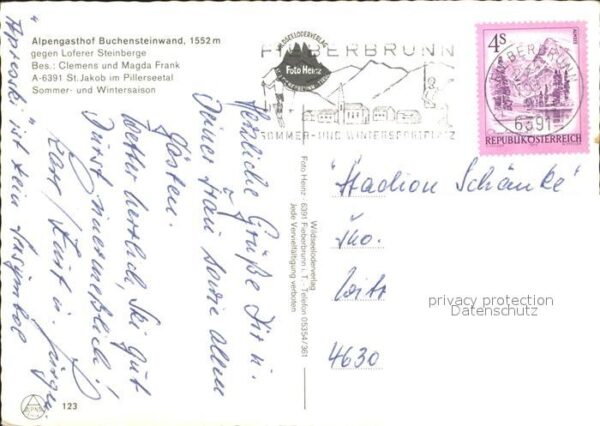 Alpengasthof Buchensteinwand, 1552 m
gegen Loferer Steinberge
Bes.: Clemens und Magda Frank
A-6391 St. Jakob im Pillerseetal
Sommer- und Wintersaison
Herzliche Grüße Dir u.
Deiner Frau sowie allen
Gästen.
Wetter herrlich, Ski gut
Durst unermeßlich!
Kurt u.
ist kein
WILDSEELODERVERLAG
Foto Heinz
FIEBERBRUNN
SOMMER- UND WINTERSPORTPLATZ
4S
ALMSEE
REPUBLIK ÖSTERREICH
FIEBERBRUNN
6391
Wildseeloderverlag
Foto Heinz · 6391 Fieberbrunn · Telefon 05354/361
Jede Vervielfältigung verboten
"Stadion Schänke"
4630
privacy protection
Datenschutz
123